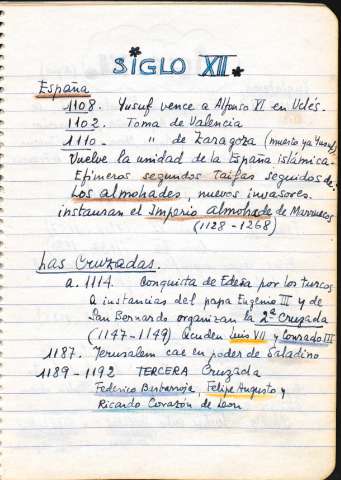 SIGLO XII
España
1108. Yusuf vence a Alfonso VI en Uclés.
1102. Toma de Valencia
1110. " de Zaragoza (muerto ya Yusuf)
Vuelve la unidad de la España islámica.
Efímeros segundos Taifas seguidos de.
Los almohades, nuevos invasores.
instauran el Imperio almohade de Marruecos
(1128-1268)
Las Cruzadas.
a. 1114. Conquista de Edesa por los turcos
A instancias del papa Eugenio III y de
San Bernardo organizan la 2ª Cruzada
(1147-1149) Acuden Luis VII y Conrado III
1187. Jerusalem cae en poder de Saladino
1189-1192 TERCERA Cruzada
Federico Barbarroja, Felipe Augusto y
Ricardo Corazón de León